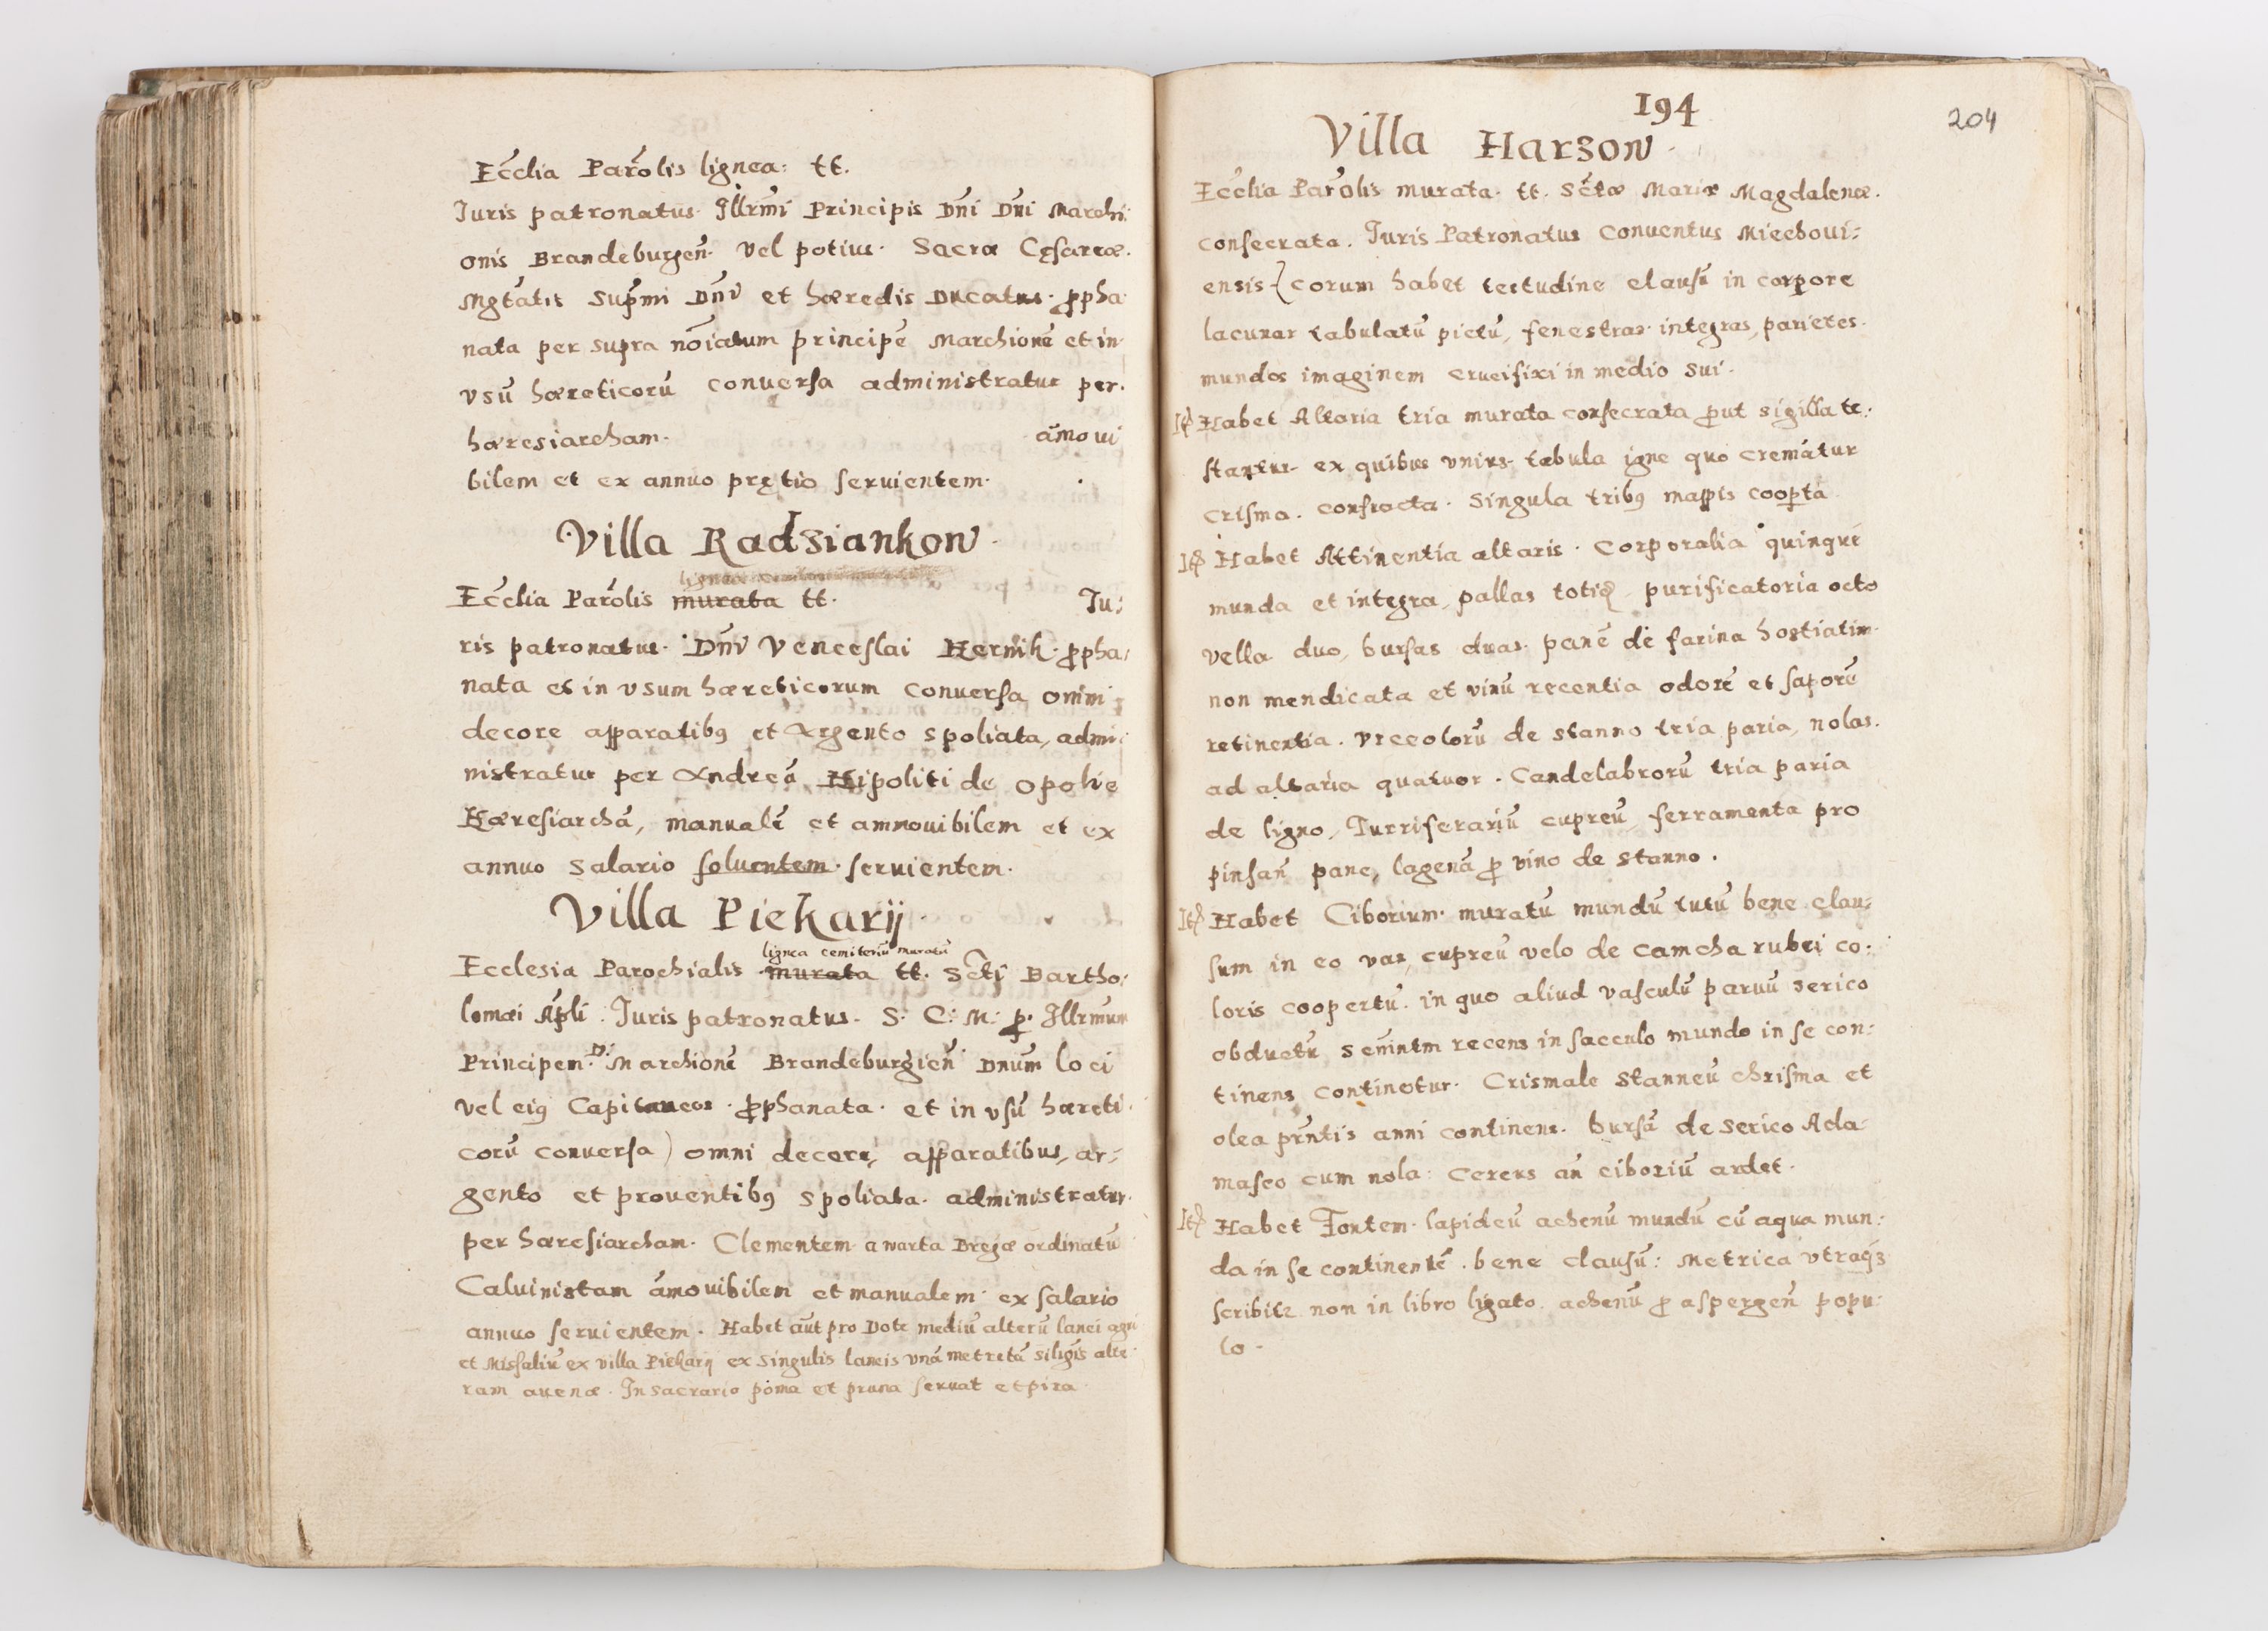 Ecclia Parolis lignea: tt.
Iuris patronatus Illrmi Principis Dni Dni Marchi:
onis Brandeburgen̄ vel potius Sacræ Cęsareæ
Mgtatis Supmi Dni et hæredis Ducatus ꝓpha
nata per supra noiatum principē Marchionē et in
vsū hæreticorū conuersa administratur per
hæresiarcham. āmoui
bilem et ex annuo prętio seruientem.
Villa Radziankow
lignea
Ecclia Parolis murata tt. Iu:
ris patronatus Dni Venceslai Kernik ꝓpha:
nata et in vsum hæreticorum conuersa omni
decore apparatibꝰ et Argento spoliata, admi:
nistratur per Andreā Hipoliti de opolie
Hæresiarchā, manualē et ammouibilem et ex
annuo salario soluentem seruientem.
Villa Piekarij
lignea cemiteriū muratū
Ecclesia Parochialis murata tt. Scti Bartho:
lomæi Apli. Iuris patronatus S: C: M: ꝑ Illrmum
Principem D: Marchionē Brandeburgien̄ Dnum loci
vel eiꝰ Capitaneos ꝓphanata et in vsū hæreti
corū conuersa) omni decore, apparatibus, ar:
gento et prouentibꝰ spoliata administratur
per hæresiarcham Clementem a warta Bregæ ordinatū
Caluinistam āmouibilem et manualem ex salario
annuo seruientem. Habet aūt pro Dote mediū alterū lanei agri
et Missaliū ex villa Piekarij ex singulis laneis vnā metretā siligis alte
ram auenæ. In sacrario poma et pruna seruat et pira
194
204
Villa Harzow
Ecclia Parolis murata tt. Sctæ Mariæ Magdalenæ.
consecrata. Iuris Patronatus Conuentus Miechoui:
ensis { corum habet testudine clausū in corpore
lacunar tabulatū pictū, fenestras integras, parietes
mundos imaginem crucifixi in medio sui.
It Habet Altaria tria murata consecrata ꝓut sigilla te:
stantur ex quibus vnius tabula igne quo crematur
crisma. confracta. Singula tribꝰ mappis cooperta
It Habet Attinentia altaris. Corporalia quinque
munda et integra, pallas totiꝫ, purificatoria octo
vella duo, bursas duas. panē de farina hostiatim
non mendicata et vinū recentia odorē et saporē
retinentia. vrceolorū de stanno tria paria, nolas
ad altaria quatuor. Candelabrorū tria paria
de ligno, Turriferariū cupreū, ferramenta pro
pinsan̄ pane, lagenā ꝓ vino de stanno.
It Habet Ciborium muratū mundū tutū bene clau:
sum in eo vas cupreū velo de Camcha rubei co:
loris coopertū in quo aliud vasculū paruū serico
obductū Scmntm recens in sacculo mundo in se con:
tinens continetur. Crismale stanneū chrisma et
olea prntis anni continens. bursā de serico Ada:
masco cum nola: Cereus an̄ ciboriū ardet.
It Habet Fontem lapideū ahenū mundū cū aqua mun:
da in se continentē. bene clausū: Metrica vtraqꝫ
scribitr non in libro ligato. ahenū ꝓ aspergen̄ popu:
lo.